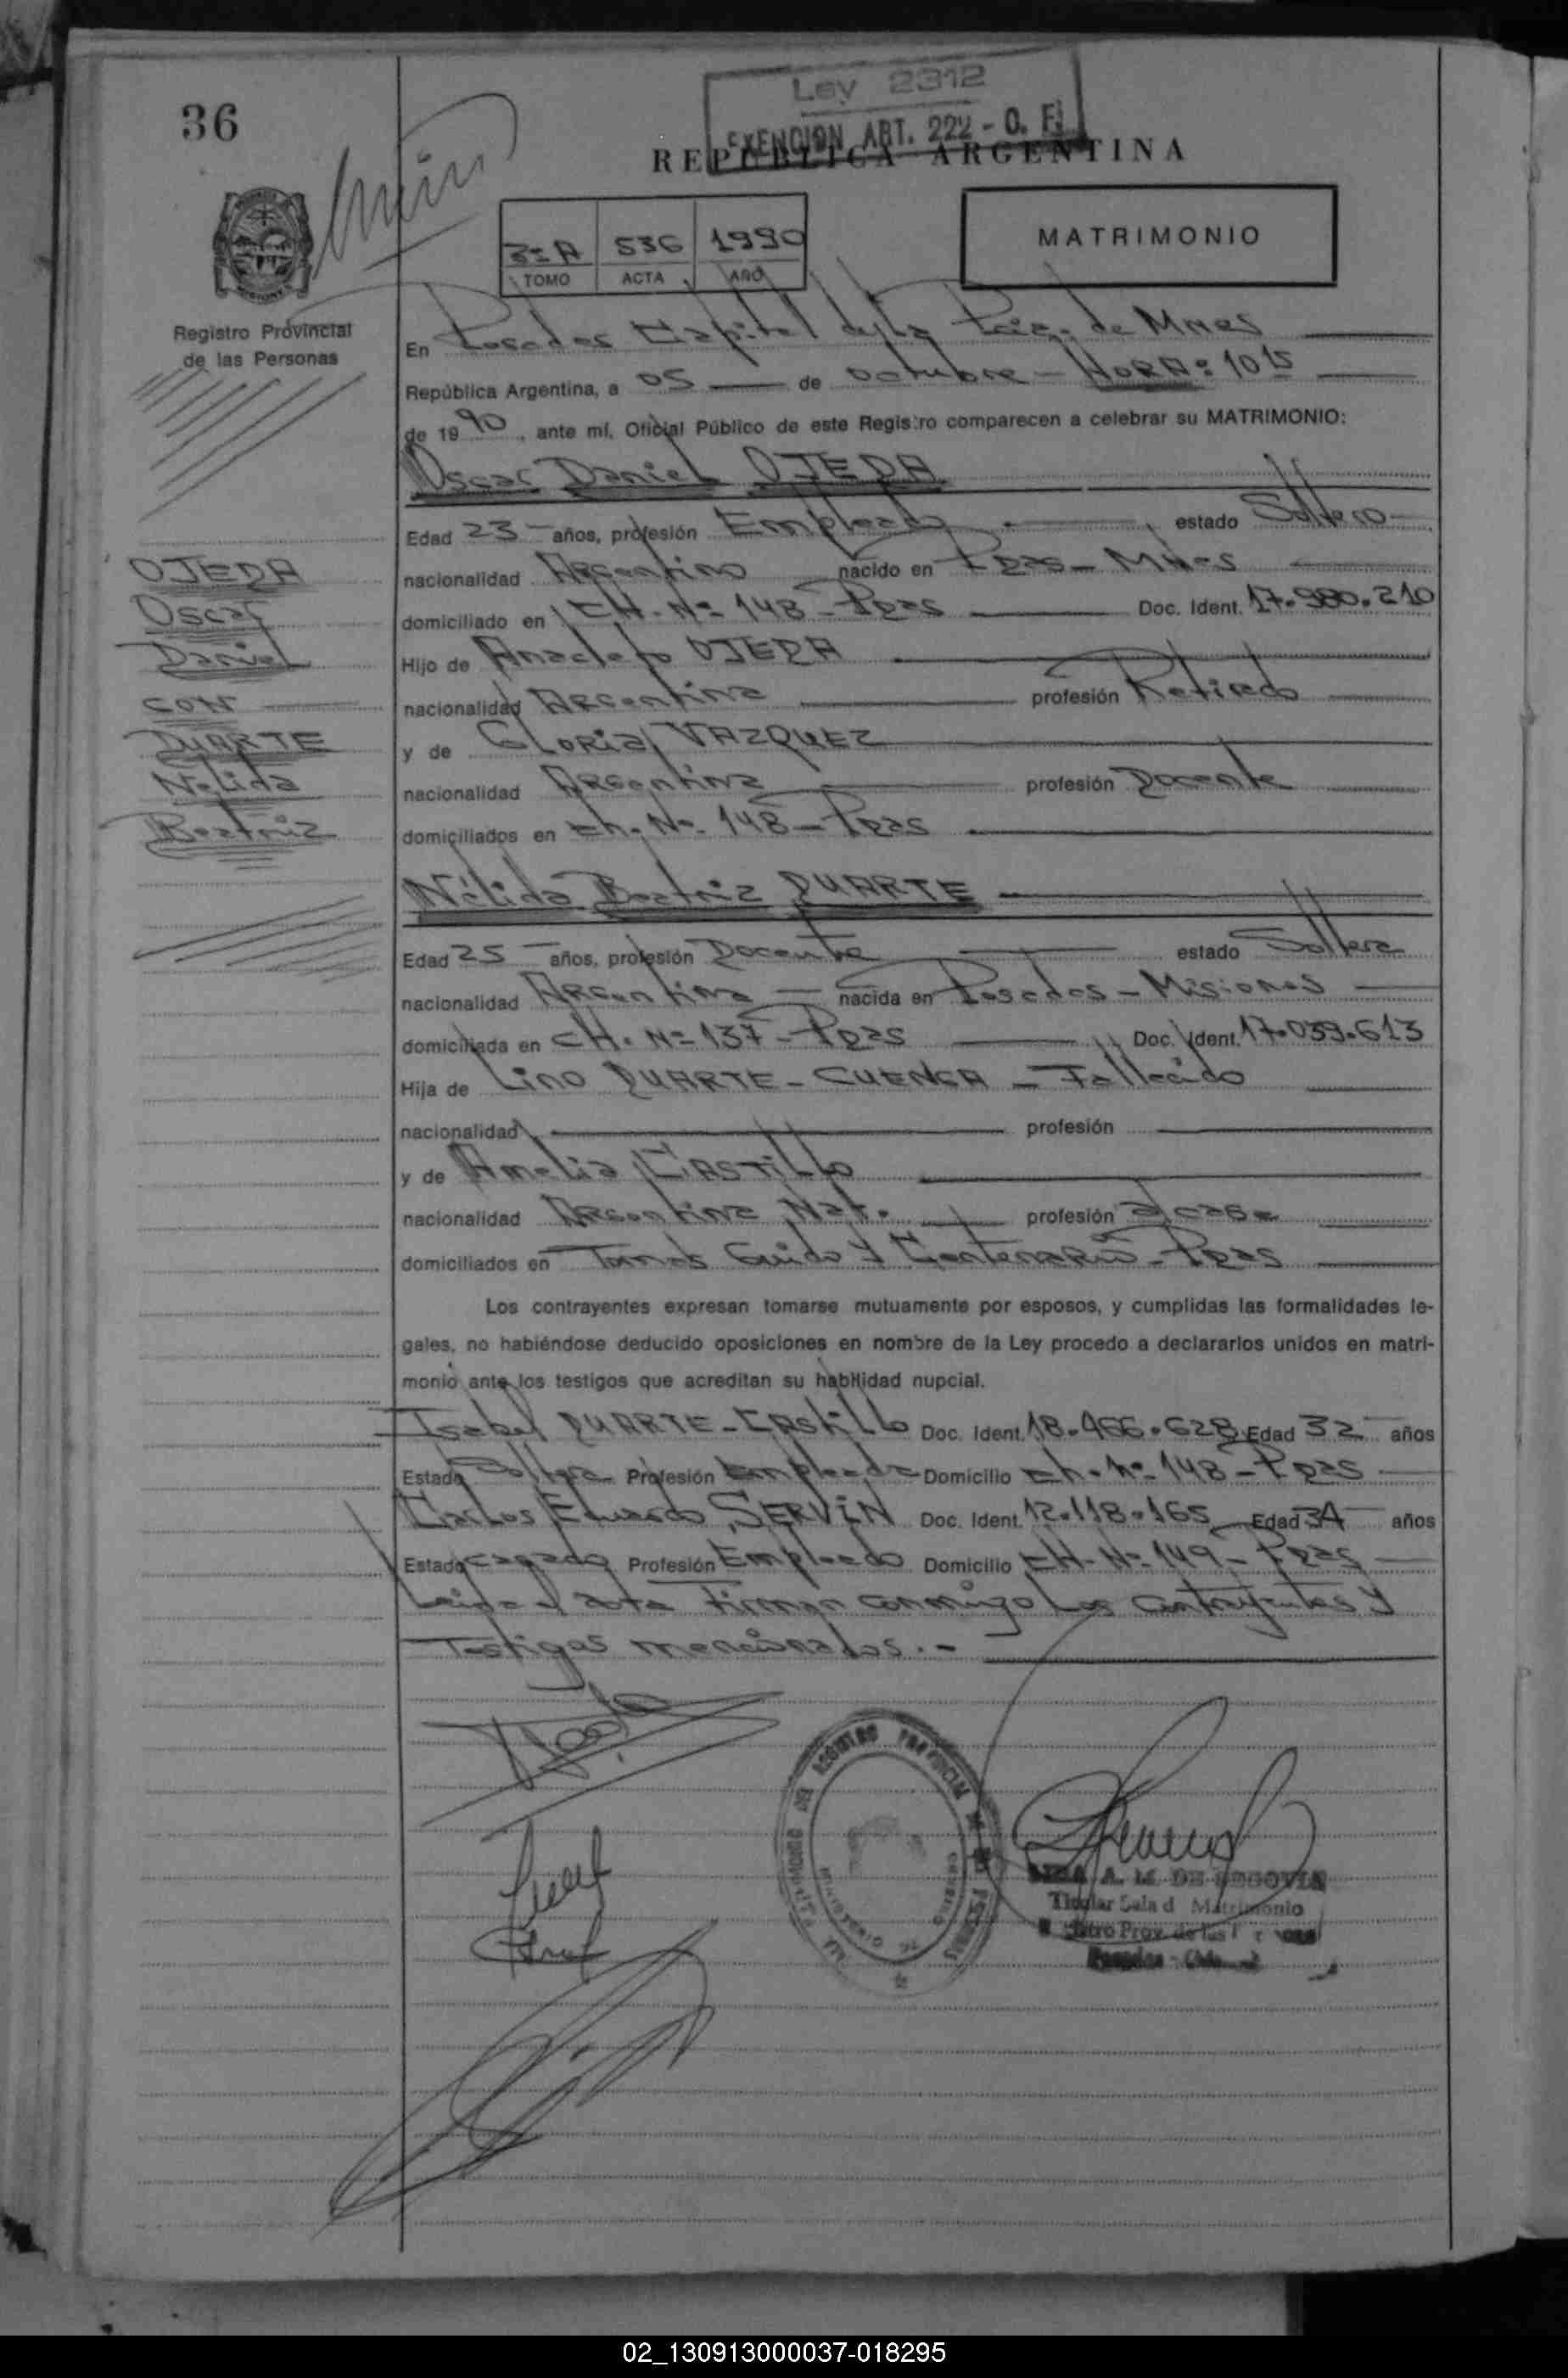 36
Ley 2312
EXENCION ART. 222 - O. F.
REPUBLICA ARGENTINA
3º A 536 1990
TOMO ACTA AÑO
MATRIMONIO
Registro Provincial
de las Personas
En Posadas Capital de la Pcia. de Mnes
República Argentina, a 05 de octubre - HORA: 10 15
de 1990, ante mí, Oficial Público de este Registro comparecen a celebrar su MATRIMONIO:
Oscar Daniel OJEDA
Edad 23 años, profesión Empleado estado Soltero
nacionalidad Argentino nacido en Pdas - Mnes
domiciliado en CH. Nº 148 - Pdas Doc. Ident. 17.980.210
Hijo de Anacleto OJEDA
nacionalidad Argentina profesión Retirado
y de GLORIA VAZQUEZ
nacionalidad Argentina profesión Docente
domiciliados en Ch. Nº 148 - Pdas
OJEDA
Oscar
Daniel
CON
DUARTE
Nelida
Beatriz
Nélida Beatriz DUARTE
Edad 25 años, profesión Docente estado Soltera
nacionalidad Argentina nacida en Posadas - Misiones
domiciliada en CH. Nº 137 - Pdas Doc. Ident. 17.039.613
Hija de Lino DUARTE - CUENCA - Fallecido
nacionalidad profesión
y de Amelia CASTILLO
nacionalidad Argentina Nat. profesión
domiciliados en Tomás Guido y Centenario - Pdas
Los contrayentes expresan tomarse mutuamente por esposos, y cumplidas las formalidades le-
gales, no habiéndose deducido oposiciones en nombre de la Ley procedo a declararlos unidos en matri-
monio ante los testigos que acreditan su habilidad nupcial.
Isabel DUARTE - CASTILLO Doc. Ident. 18.466.628 Edad 32 años
Estado Soltera Profesión Empleada Domicilio Ch. Nº 148 - Pdas
Carlos Eduardo SERVIN Doc. Ident. 12.118.165 Edad 34 años
Estado casado Profesión Empleado Domicilio CH. Nº 149 - Pdas
Leida el acta Firman conmigo Los contrayentes y
Testigos mencionados. -
A. M. DE SEGOVIA
Titular Sala d Matrimonio
Prov. de las
Posadas
02_130913000037-018295